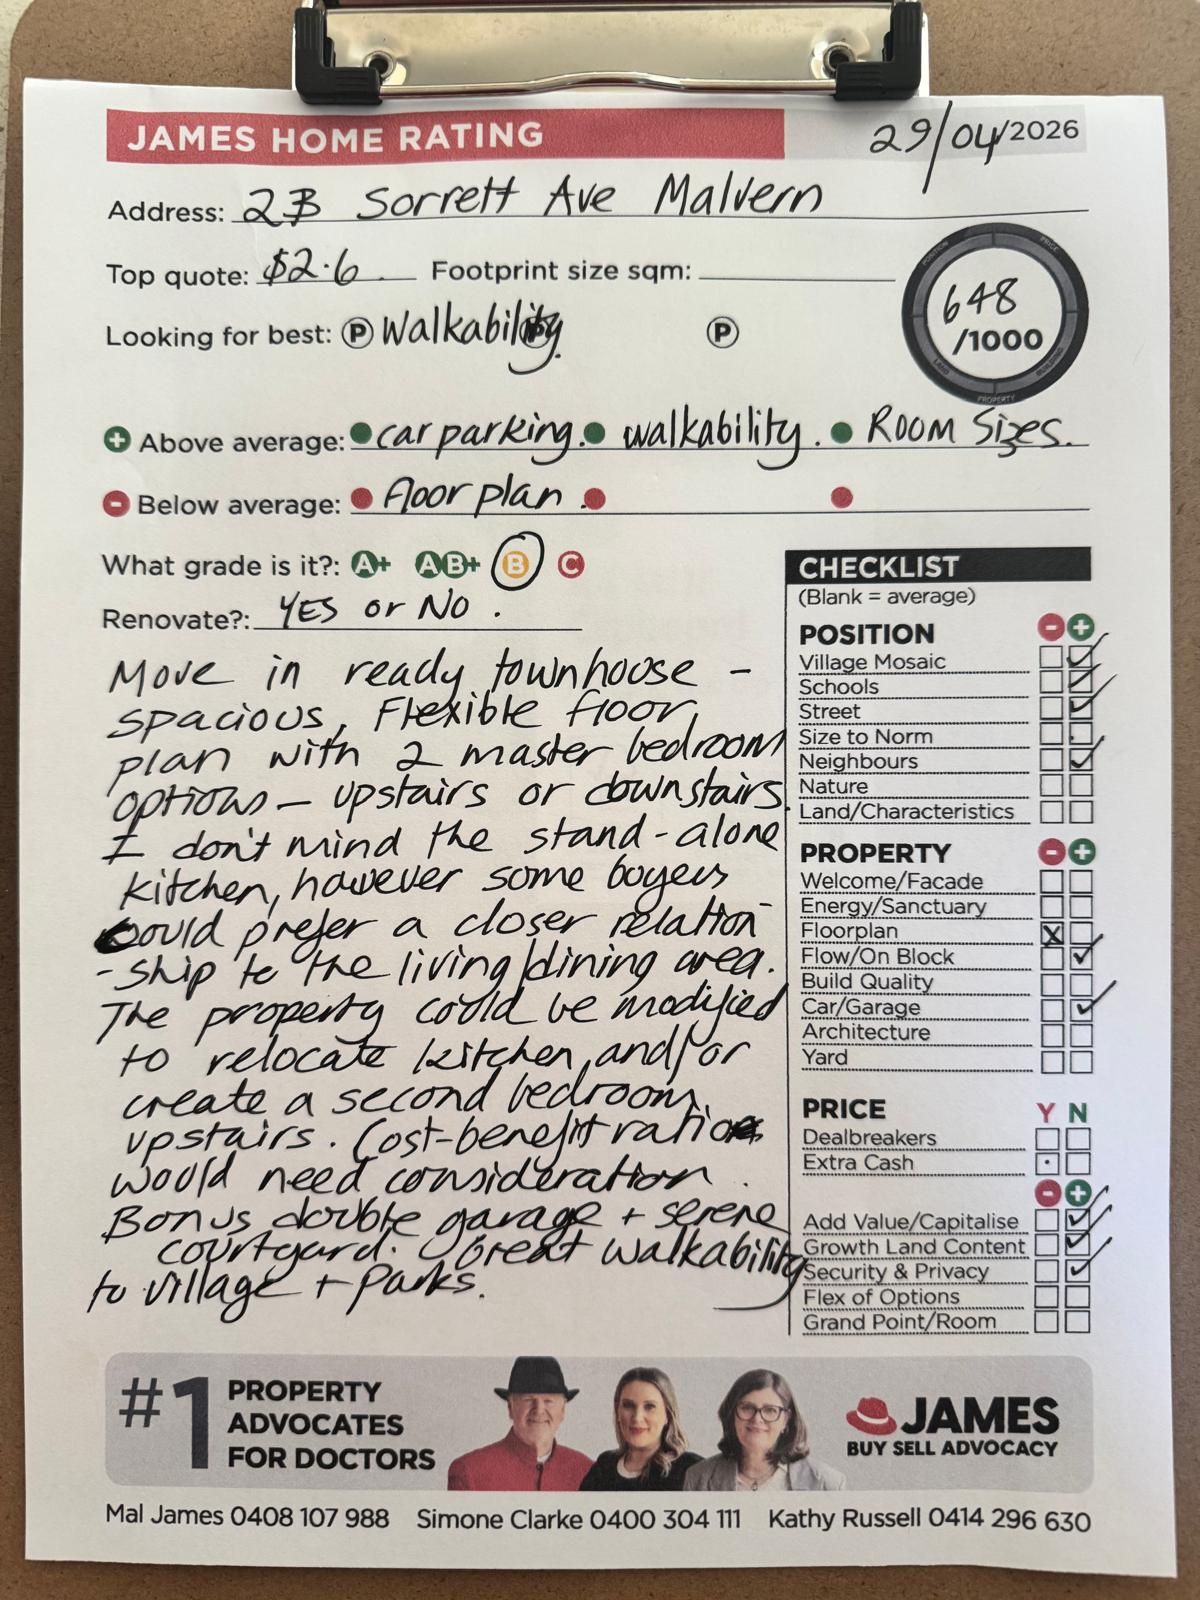 JAMES HOME RATING
29/04/2026
Address: 2B Sorrett Ave Malvern
Top quote: $2.6 Footprint size sqm:
648
/1000
POSITION PRICE LAND BUILDING PROPERTY
Looking for best: P Walkability. P
Above average: car parking. walkability. Room Sizes.
Below average: floor plan.
What grade is it?: A+ AB+ B C
Renovate?: YES or NO.
Move in ready townhouse -
spacious, Flexible floor
plan with 2 master bedroom
options - upstairs or downstairs.
I don't mind the stand-alone
kitchen, however some buyers
could prefer a closer relation
-ship to the living/dining area.
The property could be modified
to relocate kitchen and/or
create a second bedroom
upstairs. Cost-benefit ratio
would need consideration.
Bonus double garage + serene
courtyard. Great walkability
to village + Parks.
CHECKLIST
(Blank = average)
POSITION - +
Village Mosaic
Schools
Street
Size to Norm
Neighbours
Nature
Land/Characteristics
PROPERTY - +
Welcome/Facade
Energy/Sanctuary
Floorplan X
Flow/On Block
Build Quality
Car/Garage
Architecture
Yard
PRICE Y N
Dealbreakers
Extra Cash
- +
Add Value/Capitalise
Growth Land Content
Security & Privacy
Flex of Options
Grand Point/Room
#1 PROPERTY
ADVOCATES
FOR DOCTORS
JAMES
BUY SELL ADVOCACY
Mal James 0408 107 988 Simone Clarke 0400 304 111 Kathy Russell 0414 296 630